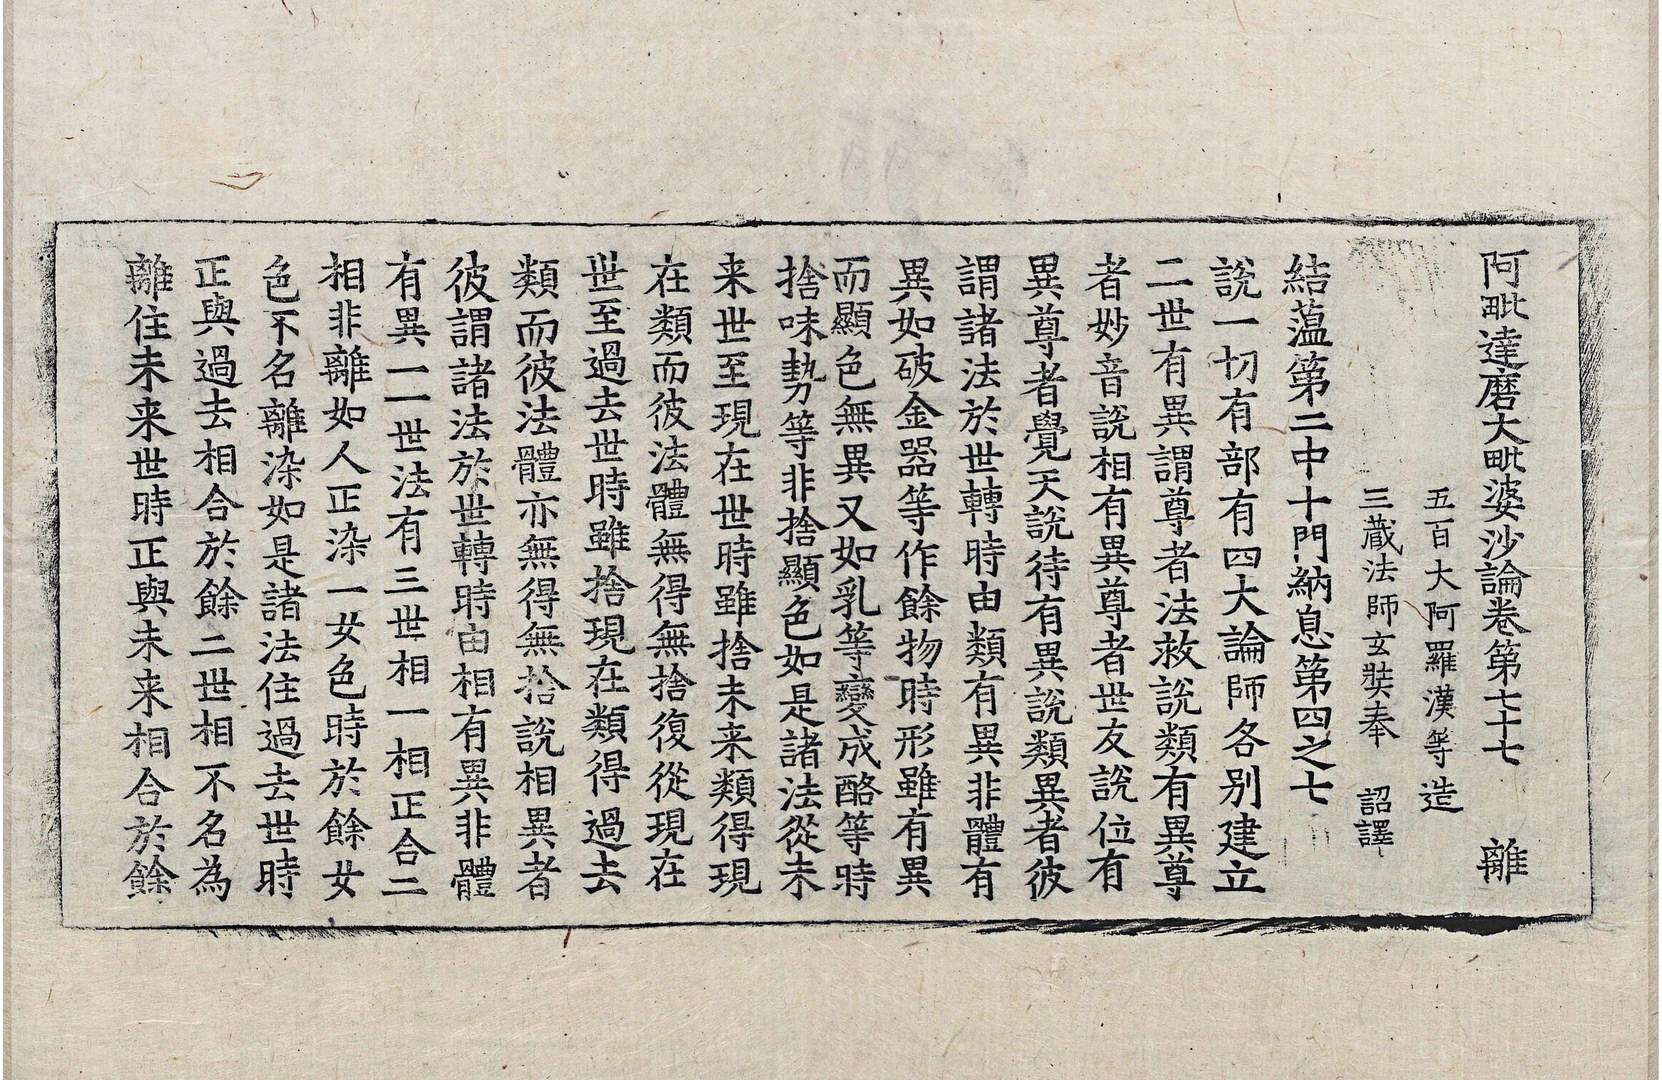 阿毗達磨大毗婆沙論卷第七十七 離
五百大阿羅漢等造
三藏法師玄奘奉 詔譯
結蕰第二中十門納息第四之七
說一切有部有四大論師各別建立
二世有異謂尊者法救說類有異尊
者妙音說相有異尊者世友說位有
異尊者覺天說待有異說類異者彼
謂諸法於世轉時由類有異非體有
異如破金器等作餘物時形雖有異
而顯色無異又如乳等變成酪等時
捨味勢等非捨顯色如是諸法從未
来世至現在世時雖捨未来類得現
在類而彼法體無得無捨復從現在
世至過去世時雖捨現在類得過去
類而彼法體亦無得無捨說相異者
彼謂諸法於世轉時由相有異非體
有異一一世法有三世相一相正合二
相非離如人正染一女色時於餘女
色不名離染如是諸法住過去世時
正與過去相合於餘二世相不名為
離住未来世時正與未来相合於餘